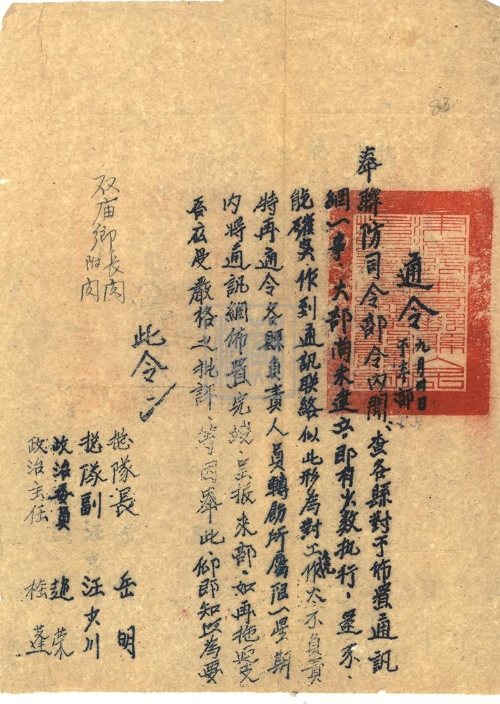 83
通令 九月廿日
于本部
奉聯防司令部令內開、查各縣對于佈置通訊
網一事、大部尚未建立、即有少數執行、並不
能確實作到通訊聯絡似此形為對工作太不負責
特再通令各縣負責人員轉飭所屬限一星期
內將通訊網佈置完竣、呈报來部、如再拖延受
吾底是嚴格之批評、等因奉此、仰即知照為要
此令
总隊長 岳明
总隊副 汪少川
政治委員 趙荣
政治主任 桂蓬
双庙鄉長阅
阅